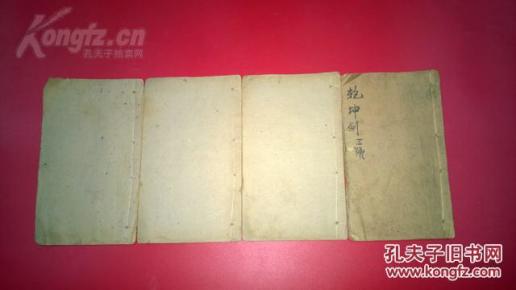 Kongfz.cn
孔夫子拍卖网
乾坤剑
孔夫子旧书网
www.kongfz.com